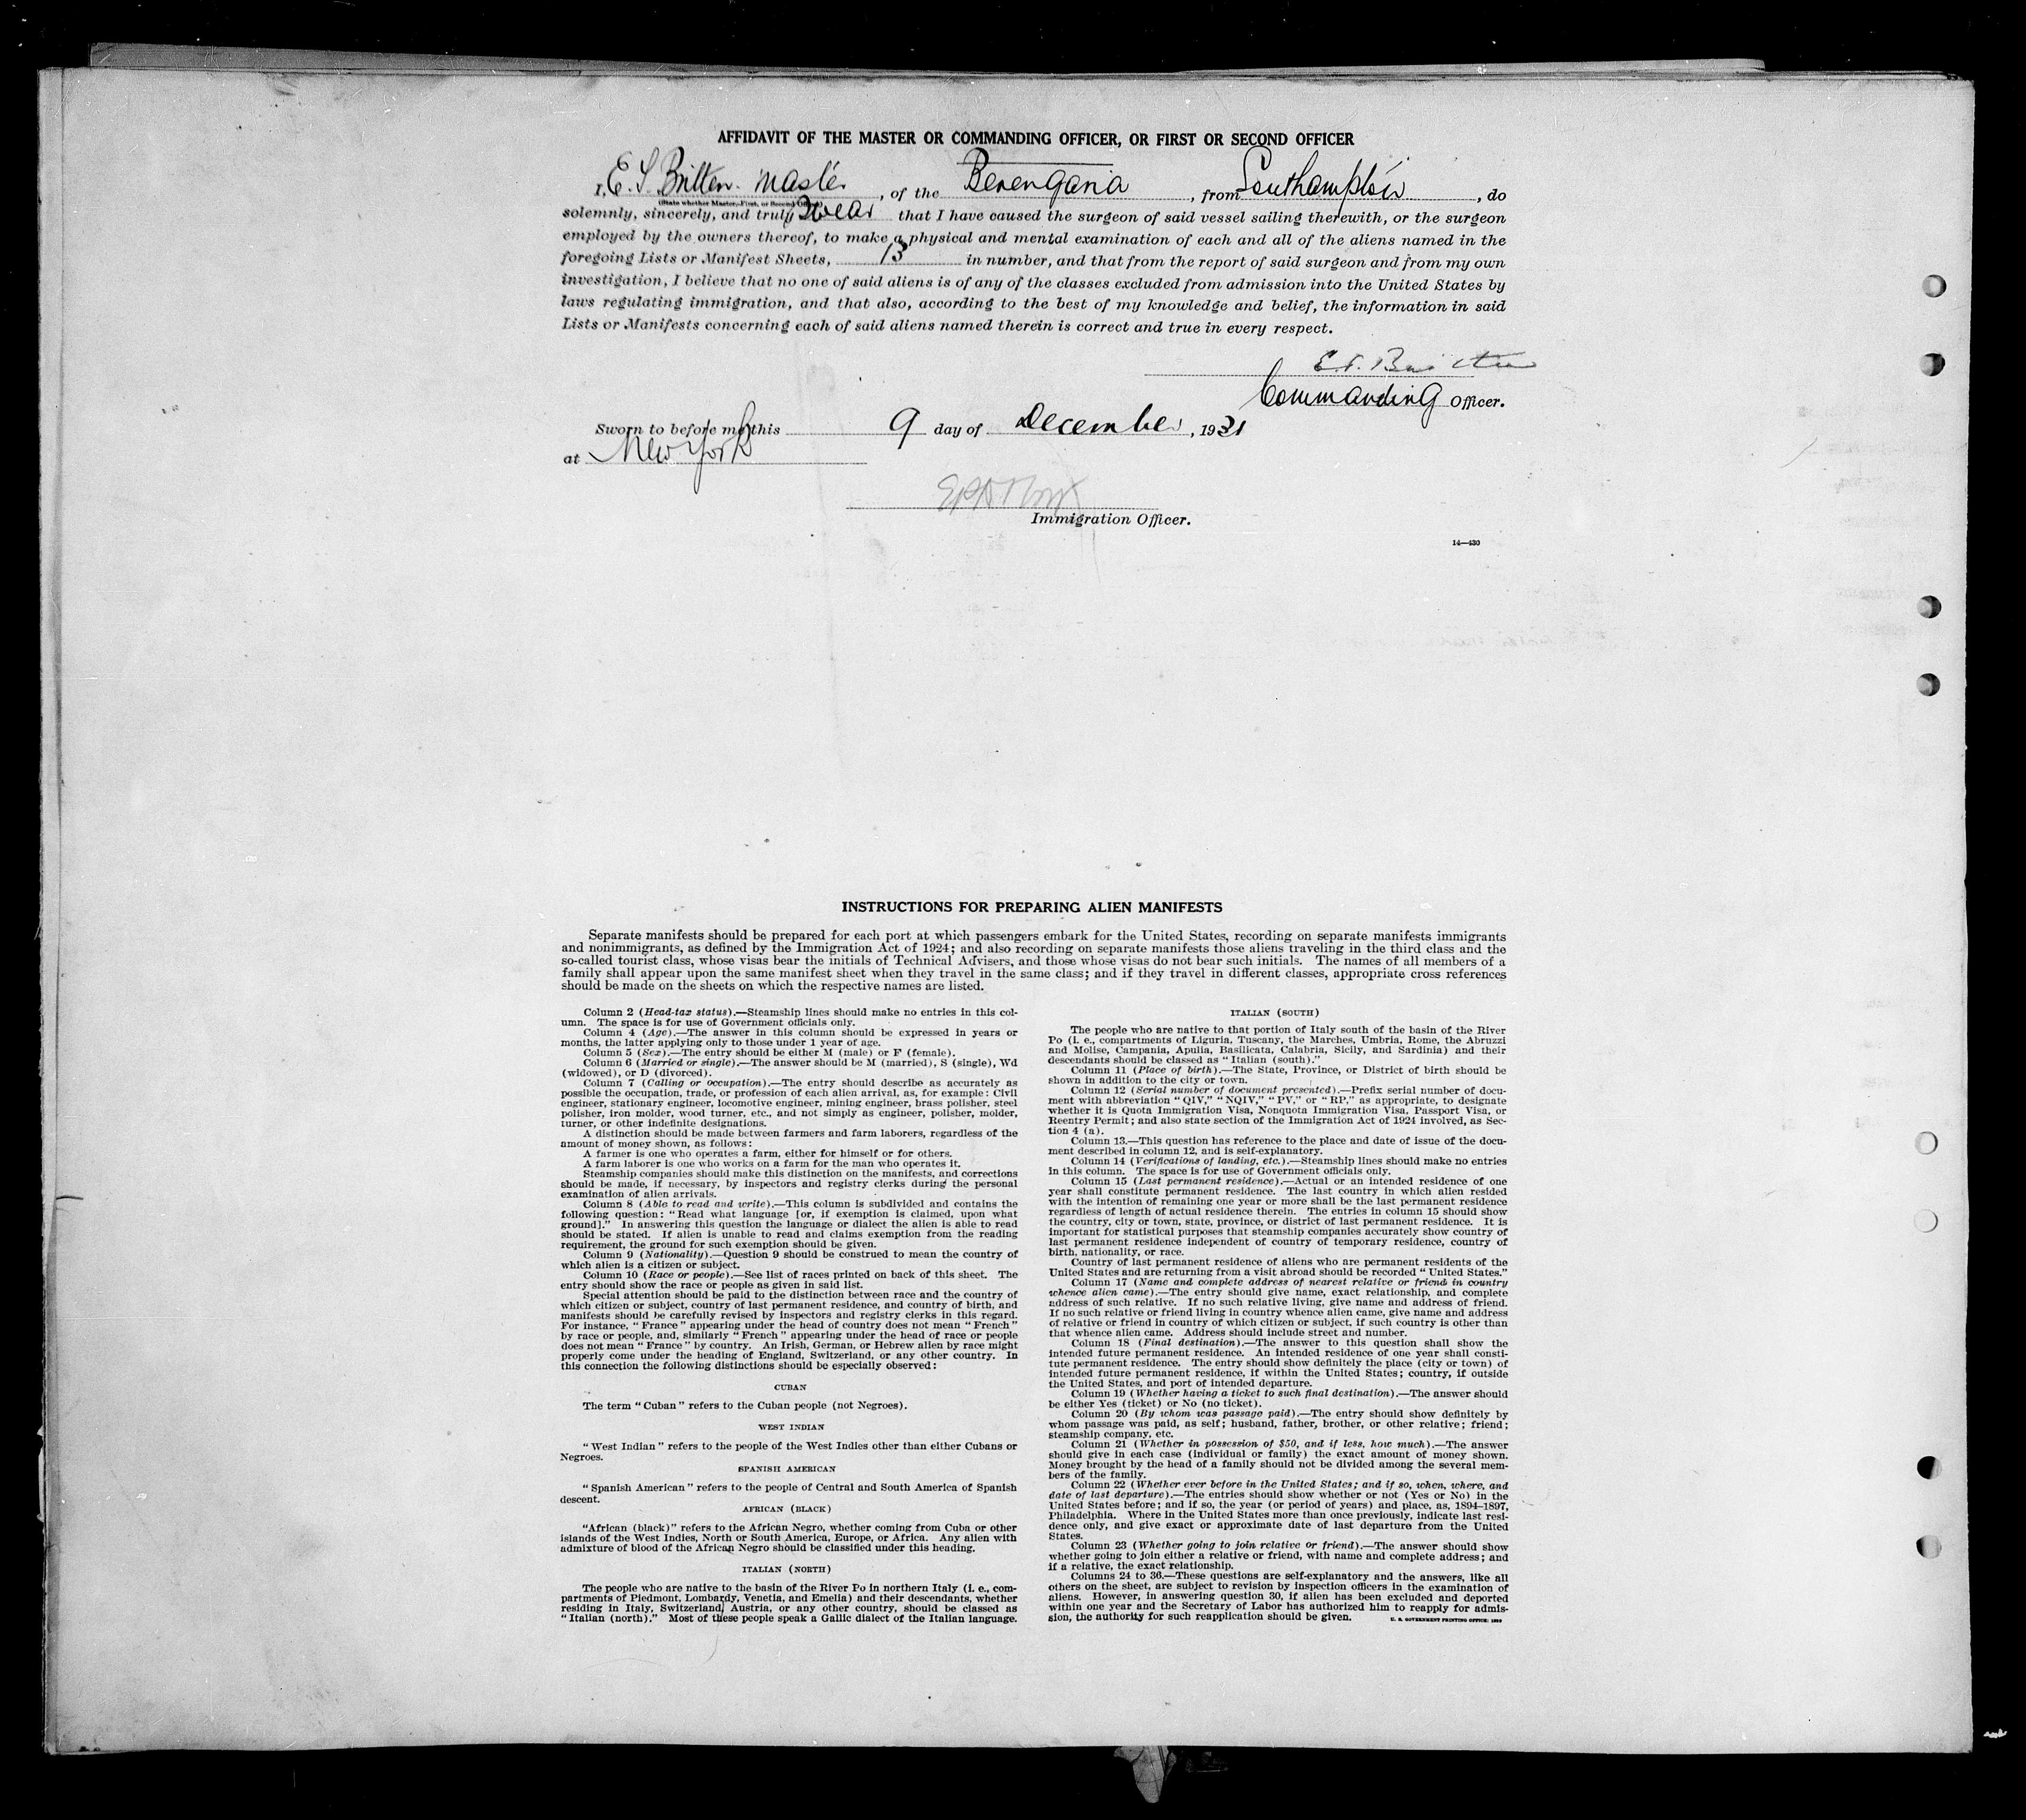 AFFIDAVIT OF THE MASTER OR COMMANDING OFFICER, OR FIRST OR SECOND OFFICER
I, E. S. Britten. Master, of the Berengaria, from Southampton, do
(State whether Master, First, or Second Officer)
solemnly, sincerely, and truly Swear that I have caused the surgeon of said vessel sailing therewith, or the surgeon
employed by the owners thereof, to make a physical and mental examination of each and all of the aliens named in the
foregoing Lists or Manifest Sheets, 13 in number, and that from the report of said surgeon and from my own
investigation, I believe that no one of said aliens is of any of the classes excluded from admission into the United States by
laws regulating immigration, and that also, according to the best of my knowledge and belief, the information in said
Lists or Manifests concerning each of said aliens named therein is correct and true in every respect.
E. S. Britten
Commanding Officer.
Sworn to before me this 9 day of December, 1931
at New York
Immigration Officer.
14—430
INSTRUCTIONS FOR PREPARING ALIEN MANIFESTS
Separate manifests should be prepared for each port at which passengers embark for the United States, recording on separate manifests immigrants
and nonimmigrants, as defined by the Immigration Act of 1924; and also recording on separate manifests those aliens traveling in the third class and the
so-called tourist class, whose visas bear the initials of Technical Advisers, and those whose visas do not bear such initials. The names of all members of a
family shall appear upon the same manifest sheet when they travel in the same class; and if they travel in different classes, appropriate cross references
should be made on the sheets on which the respective names are listed.
Column 2 (Head-tax status).—Steamship lines should make no entries in this col-
umn. The space is for use of Government officials only.
Column 4 (Age).—The answer in this column should be expressed in years or
months, the latter applying only to those under 1 year of age.
Column 5 (Sex).—The entry should be either M (male) or F (female).
Column 6 (Married or single).—The answer should be M (married), S (single), Wd
(widowed), or D (divorced).
Column 7 (Calling or occupation).—The entry should describe as accurately as
possible the occupation, trade, or profession of each alien arrival, as, for example: Civil
engineer, stationary engineer, locomotive engineer, mining engineer, brass polisher, steel
polisher, iron molder, wood turner, etc., and not simply as engineer, polisher, molder,
turner, or other indefinite designations.
A distinction should be made between farmers and farm laborers, regardless of the
amount of money shown, as follows:
A farmer is one who operates a farm, either for himself or for others.
A farm laborer is one who works on a farm for the man who operates it.
Steamship companies should make this distinction on the manifests, and corrections
should be made, if necessary, by inspectors and registry clerks during the personal
examination of alien arrivals.
Column 8 (Able to read and write).—This column is subdivided and contains the
following question: "Read what language [or, if exemption is claimed, upon what
ground]." In answering this question the language or dialect the alien is able to read
should be stated. If alien is unable to read and claims exemption from the reading
requirement, the ground for such exemption should be given.
Column 9 (Nationality).—Question 9 should be construed to mean the country of
which alien is a citizen or subject.
Column 10 (Race or people).—See list of races printed on back of this sheet. The
entry should show the race or people as given in said list.
Special attention should be paid to the distinction between race and the country of
which citizen or subject, country of last permanent residence, and country of birth, and
manifests should be carefully revised by inspectors and registry clerks in this regard.
For instance, "France" appearing under the head of country does not mean "French"
by race or people, and, similarly "French" appearing under the head of race or people
does not mean "France" by country. An Irish, German, or Hebrew alien by race might
properly come under the heading of England, Switzerland, or any other country. In
this connection the following distinctions should be especially observed:
CUBAN
The term "Cuban" refers to the Cuban people (not Negroes).
WEST INDIAN
"West Indian" refers to the people of the West Indies other than either Cubans or
Negroes.
SPANISH AMERICAN
"Spanish American" refers to the people of Central and South America of Spanish
descent.
AFRICAN (BLACK)
"African (black)" refers to the African Negro, whether coming from Cuba or other
islands of the West Indies, North or South America, Europe, or Africa. Any alien with
admixture of blood of the African Negro should be classified under this heading.
ITALIAN (NORTH)
The people who are native to the basin of the River Po in northern Italy (i. e., com-
partments of Piedmont, Lombardy, Venetia, and Emelia) and their descendants, whether
residing in Italy, Switzerland, Austria, or any other country, should be classed as
"Italian (north)." Most of these people speak a Gallic dialect of the Italian language.
ITALIAN (SOUTH)
The people who are native to that portion of Italy south of the basin of the River
Po (i. e., compartments of Liguria, Tuscany, the Marches, Umbria, Rome, the Abruzzi
and Molise, Campania, Apulia, Basilicata, Calabria, Sicily, and Sardinia) and their
descendants should be classed as "Italian (south)."
Column 11 (Place of birth).—The State, Province, or District of birth should be
shown in addition to the city or town.
Column 12 (Serial number of document presented).—Prefix serial number of docu-
ment with abbreviation "QIV," "NQIV," "PV," or "RP," as appropriate, to designate
whether it is Quota Immigration Visa, Nonquota Immigration Visa, Passport Visa, or
Reentry Permit; and also state section of the Immigration Act of 1924 involved, as Sec-
tion 4 (a).
Column 13.—This question has reference to the place and date of issue of the docu-
ment described in column 12, and is self-explanatory.
Column 14 (Verifications of landing, etc.).—Steamship lines should make no entries
in this column. The space is for use of Government officials only.
Column 15 (Last permanent residence).—Actual or an intended residence of one
year shall constitute permanent residence. The last country in which alien resided
with the intention of remaining one year or more shall be the last permanent residence
regardless of length of actual residence therein. The entries in column 15 should show
the country, city or town, state, province, or district of last permanent residence. It is
important for statistical purposes that steamship companies accurately show country of
last permanent residence independent of country of temporary residence, country of
birth, nationality, or race.
Country of last permanent residence of aliens who are permanent residents of the
United States and are returning from a visit abroad should be recorded "United States."
Column 17 (Name and complete address of nearest relative or friend in country
whence alien came).—The entry should give name, exact relationship, and complete
address of such relative. If no such relative living, give name and address of friend.
If no such relative or friend living in country whence alien came, give name and address
of relative or friend in country of which citizen or subject, if such country is other than
that whence alien came. Address should include street and number.
Column 18 (Final destination).—The answer to this question shall show the
intended future permanent residence. An intended residence of one year shall consti-
tute permanent residence. The entry should show definitely the place (city or town) of
intended future permanent residence, if within the United States; country, if outside
the United States, and port of intended departure.
Column 19 (Whether having a ticket to such final destination).—The answer should
be either Yes (ticket) or No (no ticket).
Column 20 (By whom was passage paid).—The entry should show definitely by
whom passage was paid, as self; husband, father, brother, or other relative; friend;
steamship company, etc.
Column 21 (Whether in possession of $50, and if less, how much).—The answer
should give in each case (individual or family) the exact amount of money shown.
Money brought by the head of a family should not be divided among the several mem-
bers of the family.
Column 22 (Whether ever before in the United States; and if so, when, where, and
date of last departure).—The entries should show whether or not (Yes or No) in the
United States before; and if so, the year (or period of years) and place, as, 1894–1897,
Philadelphia. Where in the United States more than once previously, indicate last resi-
dence only, and give exact or approximate date of last departure from the United
States.
Column 23 (Whether going to join relative or friend).—The answer should show
whether going to join either a relative or friend, with name and complete address; and
if a relative, the exact relationship.
Columns 24 to 36.—These questions are self-explanatory and the answers, like all
others on the sheet, are subject to revision by inspection officers in the examination of
aliens. However, in answering question 30, if alien has been excluded and deported
within one year and the Secretary of Labor has authorized him to reapply for admis-
sion, the authority for such reapplication should be given.
U. S. GOVERNMENT PRINTING OFFICE: